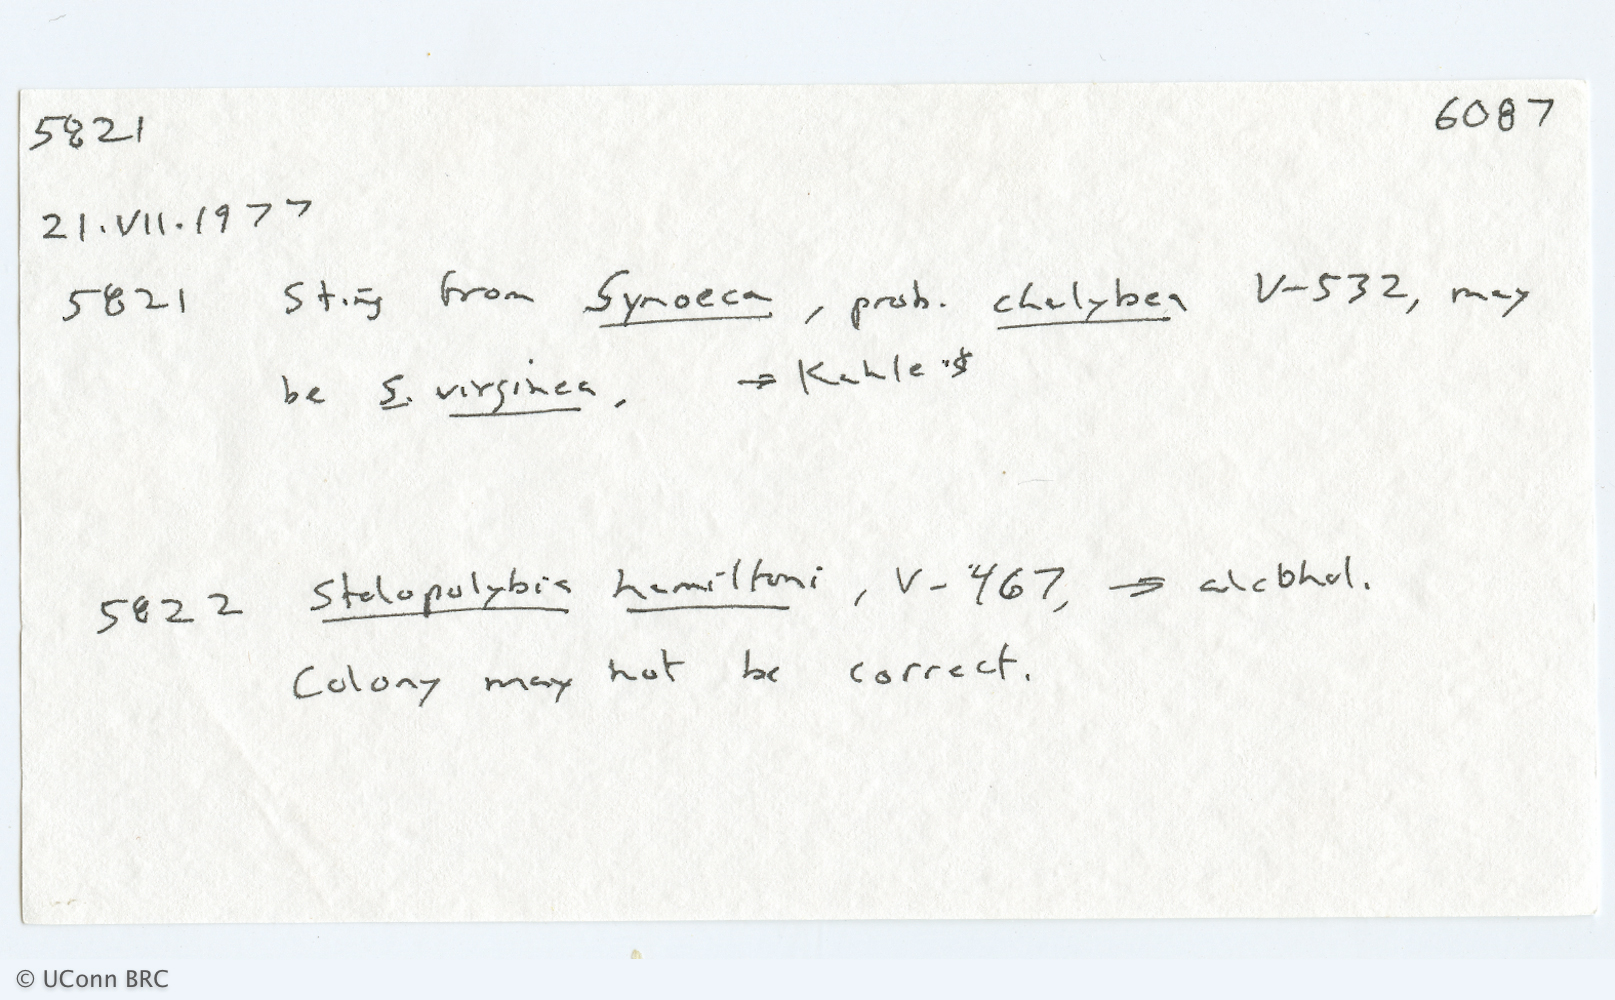 5821 6087
21.VII.1977
5821 Sting from Synoeca, prob. chalybea V-532, may
be S. virginea, → Kahle's
5822 Stelopolybia hamiltoni, V-467, → alcohol.
Colony may not be correct.
© UConn BRC